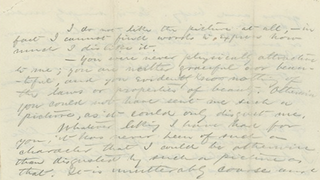 I do not like the picture at all, — in
fact I cannot find words to express how
much I dislike it.
— You were never physically attractive
to me; you are neither graceful nor beau-
tiful, and you evidently know nothing
the laws or properties of beauty. Otherwise
you could not have sent me such a
picture, as it could only disgust me.
Whatever liking I have had for
you, it has never been of such a
character that I could be otherwise
than disgusted by such a picture as
that. It is unutterably coarse and